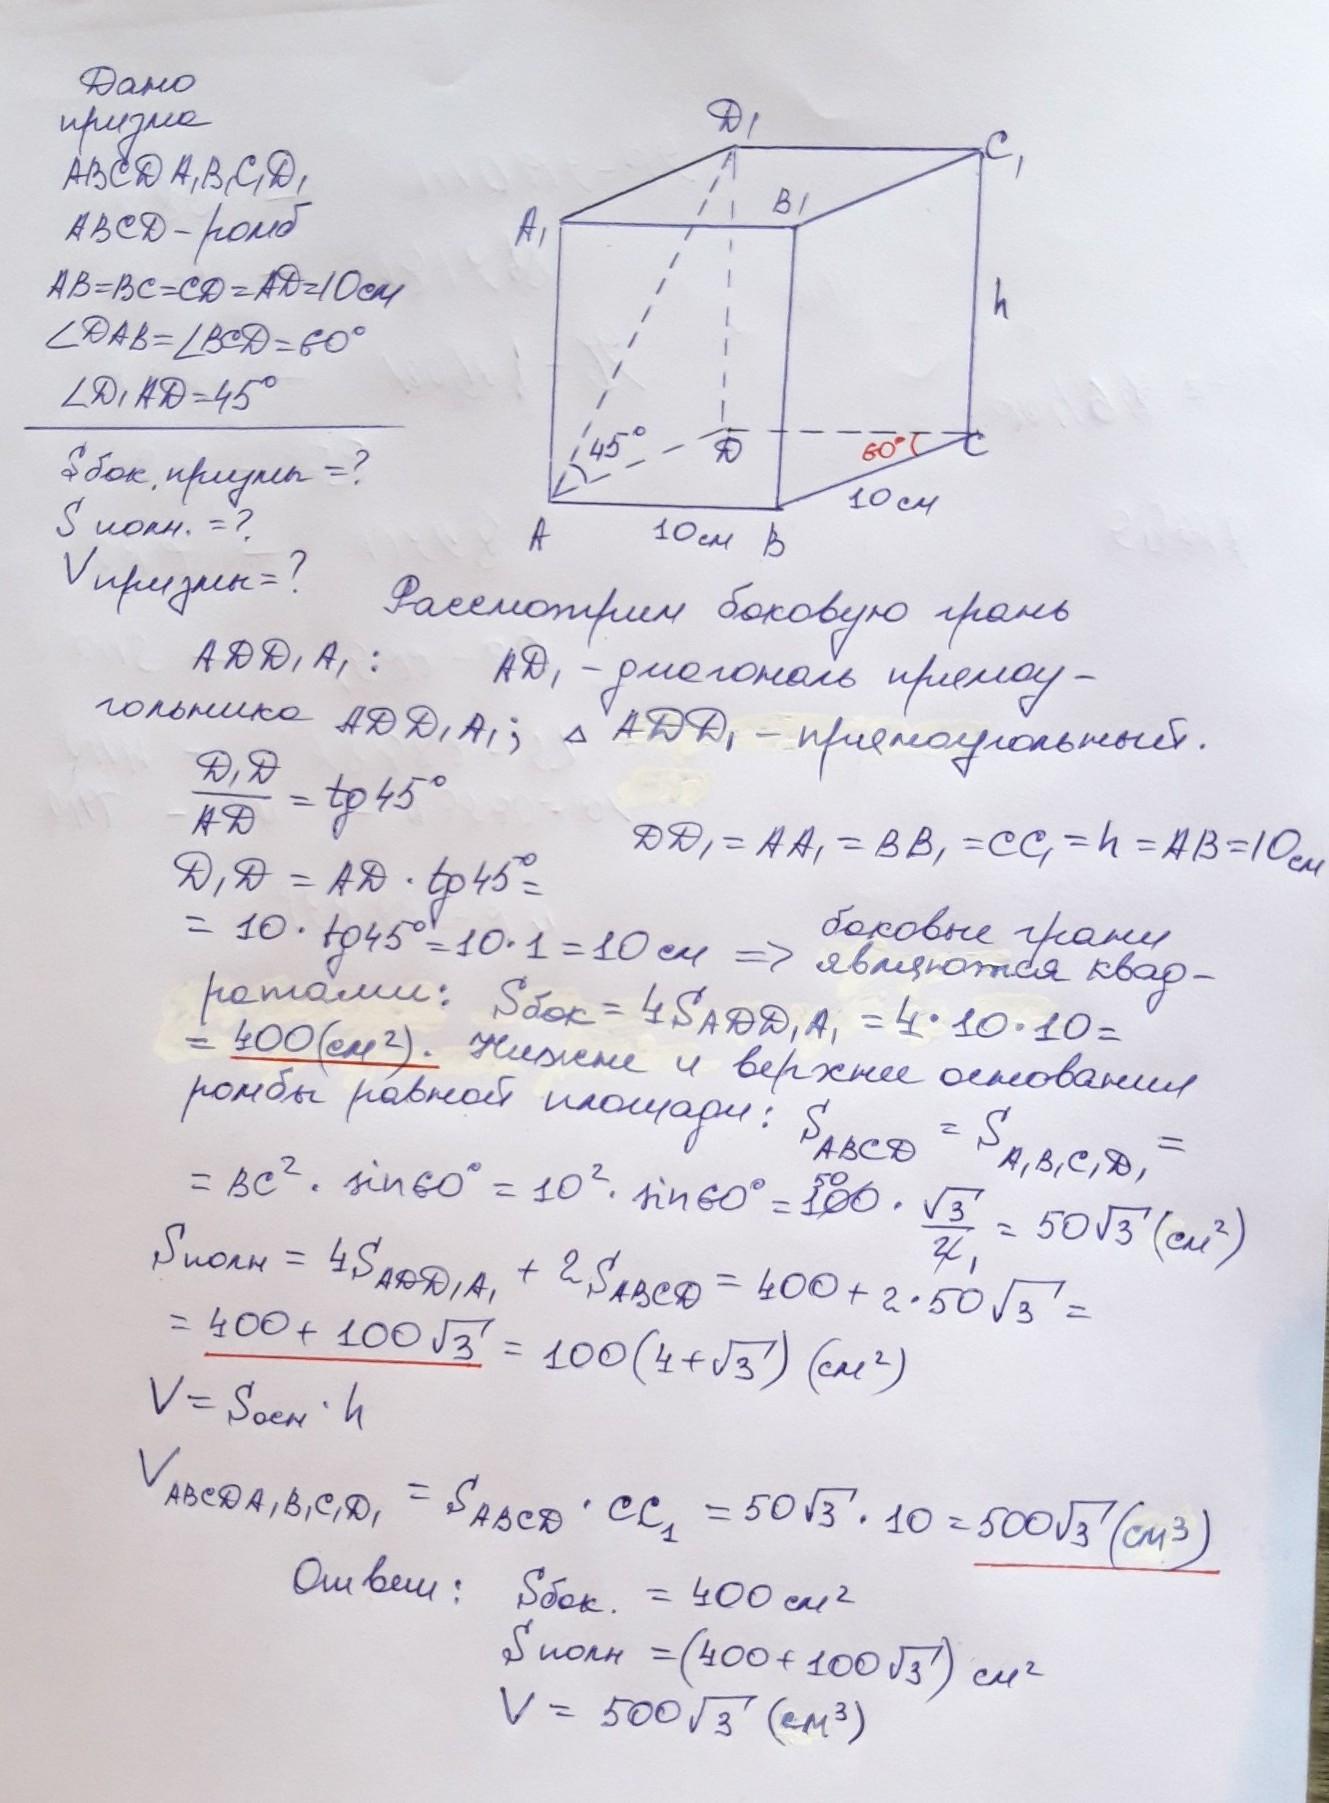 Дано
призма
ABCDA₁B₁C₁D₁
ABCD – ромб
AB=BC=CD=AD=10см
∠DAB=∠BCD=60°
∠D₁AD=45°
Sбок. призмы =?
S полн. =?
V призмы=?
D₁
C₁
A₁
B₁
h
45°
D
60°
C
10см
A
10см
B
Рассмотрим боковую грань
ADD₁A₁: AD₁ – диагональ прямоу-
гольника ADD₁A₁; △ ADD₁ – прямоугольный.
D₁D/AD = tg45°
DD₁ = AA₁ = BB₁ = CC₁ = h = AB = 10см
D₁D = AD · tg45° =
= 10 · tg45° = 10·1 = 10см => боковые грани
являются квад-
ратами: Sбок = 4S_ADD₁A₁ = 4·10·10 =
= 400(см²). Нижне и верхнее основания
ромбы равной площади: S_ABCD = S_A₁B₁C₁D₁ =
= BC² · sin60° = 10² · sin60° = 100 · √3/2 = 50√3 (см²)
Sполн = 4S_ADD₁A₁ + 2S_ABCD = 400 + 2·50√3 =
= 400 + 100√3 = 100(4+√3) (см²)
V = Sосн · h
V_ABCDA₁B₁C₁D₁ = S_ABCD · CC₁ = 50√3 · 10 = 500√3 (см³)
Ответ: Sбок. = 400 см²
Sполн = (400 + 100√3) см²
V = 500√3 (см³)